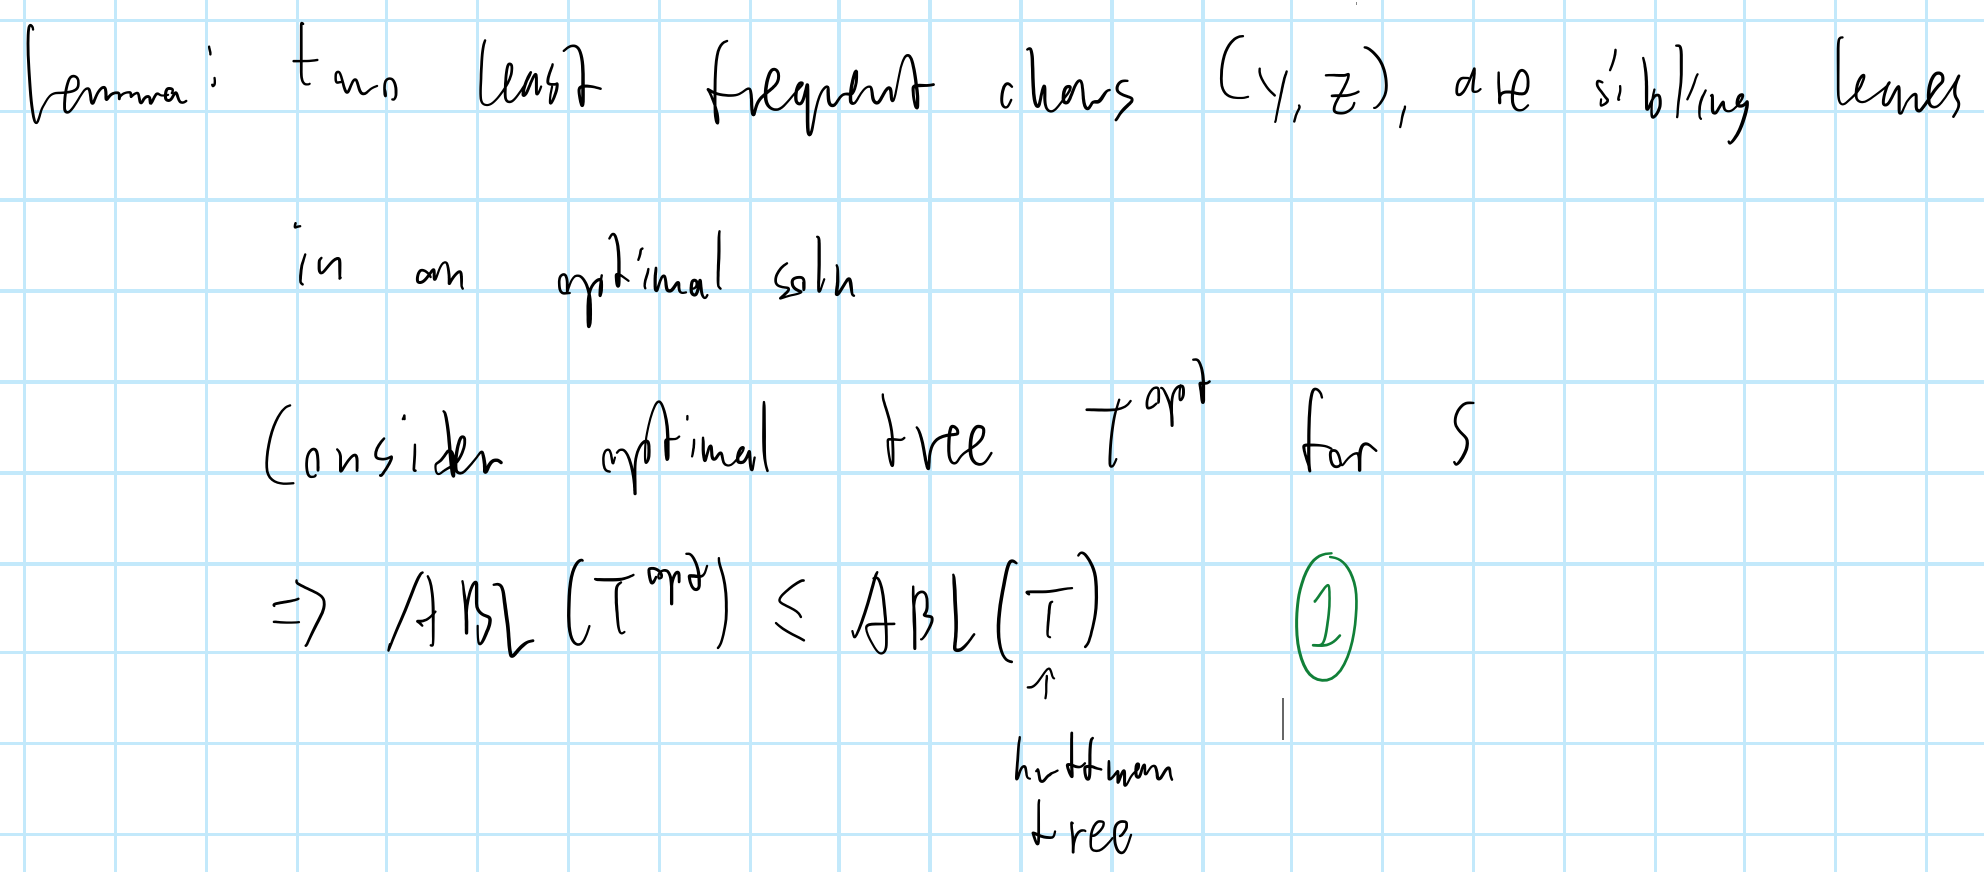 Lemma: two least frequent chars (y, z), are sibling leaves
in an optimal soln
Consider optimal tree T^opt for S
=> ABL (T^opt) ≤ ABL (T) 1
↑
huffman
tree